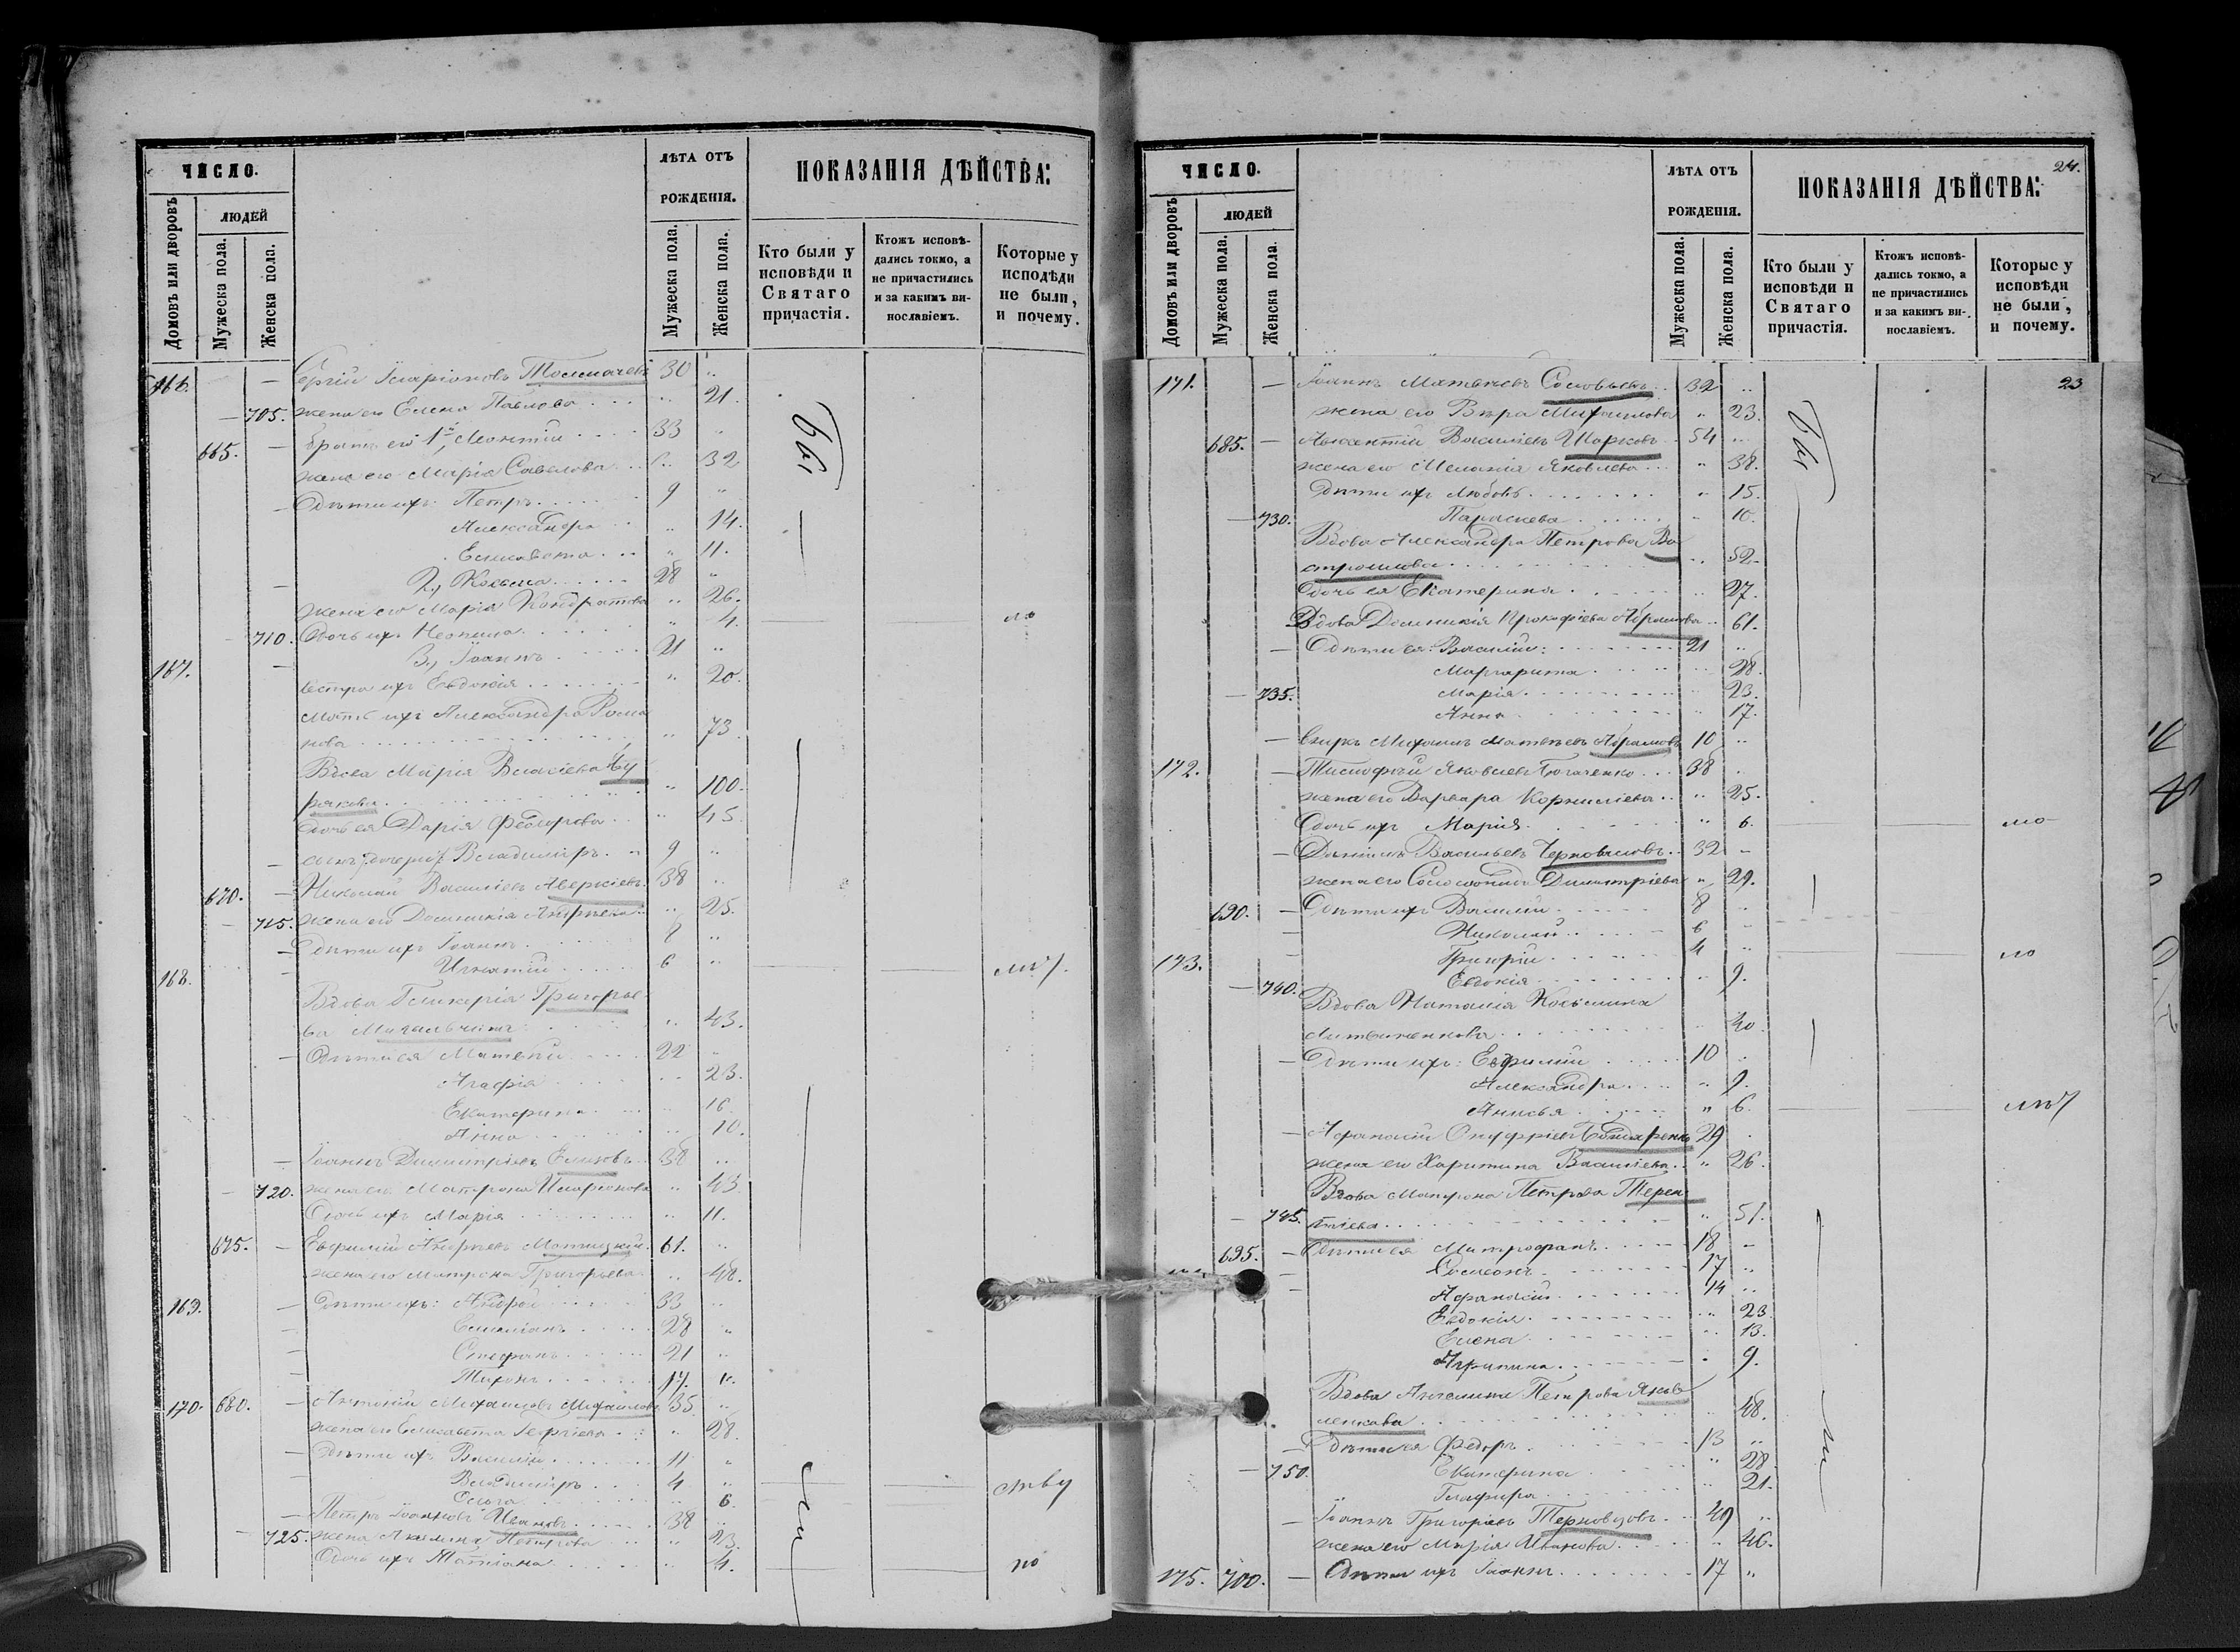 ЧИСЛО.
ЛѢТА ОТЪ
РОЖДЕНІЯ.
ПОКАЗАНІЯ ДѢЙСТВА:
Домовъ или дворовъ
ЛЮДЕЙ
Мужеска пола.
Женска пола.
Мужеска пола.
Женска пола.
Кто были у
исповѣди и
Святаго
причастія.
Ктожъ исповѣ-
дались токмо, а
не причастились
и за какимъ ви-
нославіемъ.
Которые у
исподѣди
не были,
и почему.
166. Сергій Иларіоновъ Толмачевъ 30
705. жена его Елена Павлова 21.
665. братъ его 1й Леонтій 33
жена его Марія Савелова 32
Дѣти ихъ: Петръ 9
Александра 14.
Елисавета 11.
2, Косьма 28
жена его Марія Кондратова 26.
710. Дочь ихъ Неонила 4.
167. 3, Іоаннъ 21
сестра ихъ Евдокія 20.
Мать ихъ Александра Рома
нова 73.
Вдова Марія Власіева
100.
дочь ея Дарія Ѳеодорова 45
Владиміръ 9
670. Николай Василіевъ Аверкіевъ 38
715. жена его Домникія Андреева 25.
Дѣти ихъ Іоаннъ 8
168. Игнатій 6
Вдова Гликерія Григорье
ва 43.
Дѣти ея Матвѣй 22
Агафія 23.
Екатерина 16.
Анна 10.
Іоаннъ Димитріевъ 38
720. жена его Матрона Иларіонова 43
Дочь ихъ Марія 11.
675. Евфимій Андреевъ 61.
жена его Матрона Григорьева 48.
169. Дѣти ихъ: Андрей 33
Емиліанъ 28
Стефанъ 21
Тихонъ 17.
170. 680. Антоній Михаиловъ Михайловъ 35
жена его Елисавета Георгіева 28.
Дѣти ихъ Василій 11
Владиміръ 4
Ольга 6.
Петръ Іоанновъ Ивановъ 38
725. жена Акилина Петрова 23.
Дочь ихъ Татіана 4.
24.
ЧИСЛО.
ЛѢТА ОТЪ
РОЖДЕНІЯ.
ПОКАЗАНІЯ ДѢЙСТВА:
Домовъ или дворовъ
ЛЮДЕЙ
Мужеска пола.
Женска пола.
Мужеска пола.
Женска пола.
Кто были у
исповѣди и
Святаго
причастія.
Ктожъ исповѣ-
дались токмо, а
не причастились
и за какимъ ви-
нославіемъ.
Которые у
исповѣди
не были,
и почему.
171. Іоаннъ Матвѣевъ Соловьевъ 32 23
жена его Вѣра Михаилова 23.
685. Авксентій Василіевъ Шарковъ 54
жена его Меланія Яковлева 38.
Дѣти ихъ Любовь 15.
730. Параскева 10.
Вдова Александра Петрова Ва
52.
Дочь ея Екатерина 27.
Вдова Домникія Прокофіева Абрамова 61.
Дѣти ея: Василій 21
Маргарита 28.
735. Марія 23.
Анна 17.
Михаилъ Матвѣевъ Абрамовъ 10
172. Тимофей Яковлевъ Богаченко 38
жена его Варвара Корниліева 25.
Дочь ихъ Марія 6.
Даніилъ Васильевъ 32
жена его Соломонида Димитріева 29.
690. Дѣти ихъ Василій 8
Николай 6
173. Григорій 4
740. Евдокія 9.
Вдова Наталія Косьмина
Литвиненкова 40.
Дѣти ихъ: Евфимій 10
Александра 9.
Анисья 6.
Афанасій Онуфріевъ Бондаренко 29
жена его Харитина Василіева 26.
Вдова Матрона Петрова Терен
745. тіева 51.
695. Дѣти ея Митрофанъ 18
Симеонъ 17
Афанасій 14
Евдокія 23
Елена 13.
Агрипина 9.
Вдова Ангелина Петрова Яков
ленкова 48.
Дѣти ея Федоръ 13
750. Екатерина 28
Глафира 21.
Іоаннъ Григоріевъ Терновцовъ 49
жена его Марія Иванова 46.
175. 700. Дѣти ихъ Іоаннъ 17